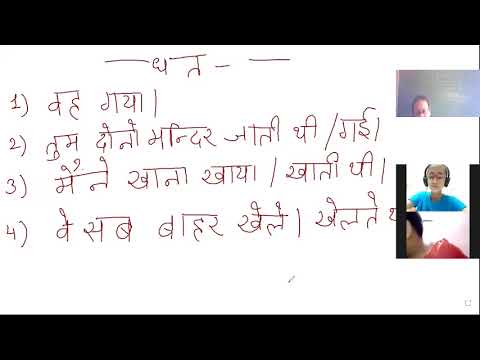 धत -
1) वह गया।
2) तुम दोनों मन्दिर जाती थी / गई।
3) मैंने खाना खाया / खाती थी।
4) वे सब बाहर खेले। खेलते